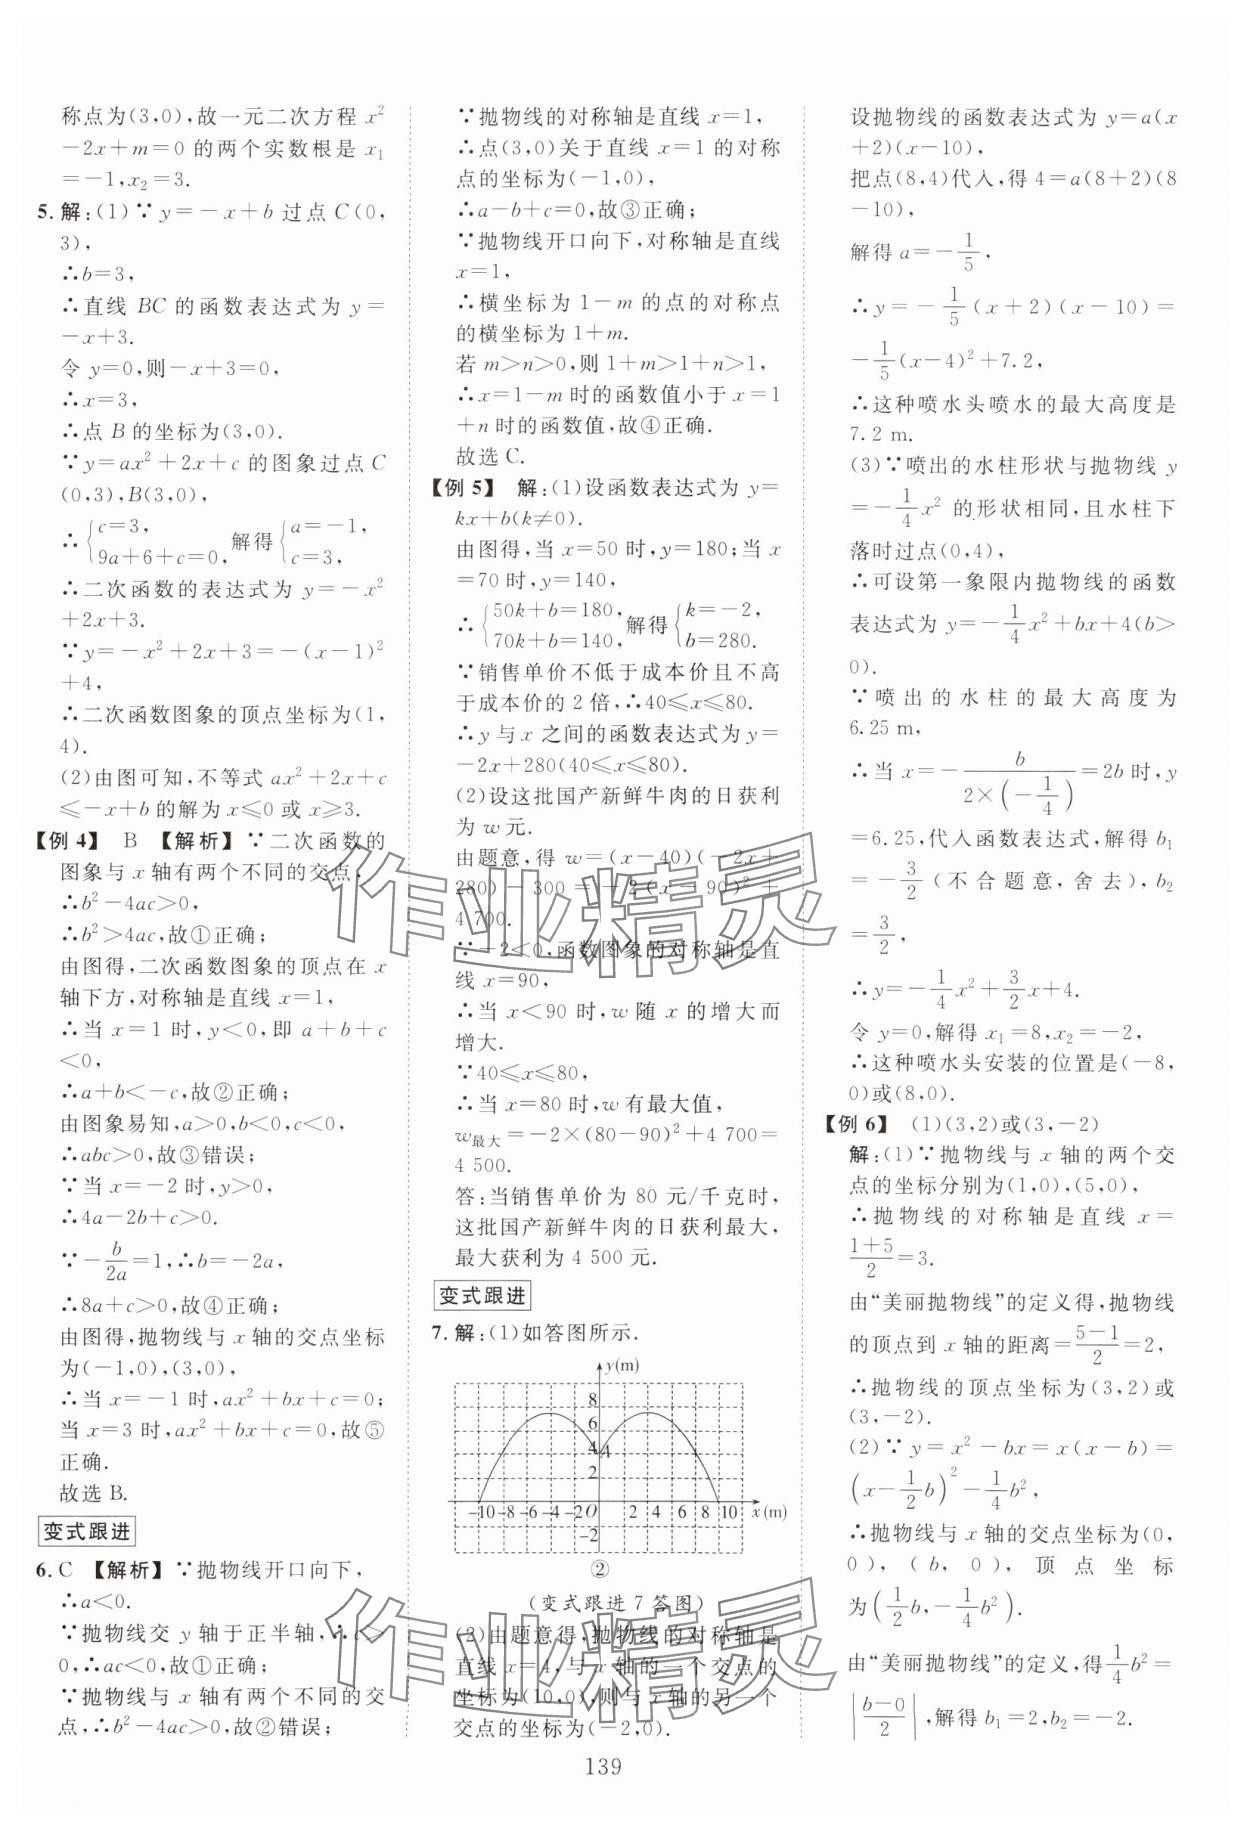 称点为(3,0),故一元二次方程 x²
-2x+m=0 的两个实数根是 x₁
=-1,x₂=3.
5.解:(1)∵y=-x+b 过点 C(0,
3),
∴b=3,
∴直线 BC 的函数表达式为 y=
-x+3.
令 y=0,则-x+3=0,
∴x=3,
∴点 B 的坐标为(3,0).
∵y=ax²+2x+c 的图象过点 C
(0,3),B(3,0),
∴{c=3, 9a+6+c=0, 解得{a=-1, c=3,
∴二次函数的表达式为 y=-x²
+2x+3.
∵y=-x²+2x+3=-(x-1)²
+4,
∴二次函数图象的顶点坐标为(1,
4).
(2)由图可知,不等式 ax²+2x+c
≤-x+b 的解为 x≤0 或 x≥3.
【例 4】 B 【解析】∵二次函数的
图象与 x 轴有两个不同的交点,
∴b²-4ac>0,
∴b²>4ac,故①正确;
由图得,二次函数图象的顶点在 x
轴下方,对称轴是直线 x=1,
∴当 x=1 时,y<0,即 a+b+c
<0,
∴a+b<-c,故②正确;
由图象易知,a>0,b<0,c<0,
∴abc>0,故③错误;
∵当 x=-2 时,y>0,
∴4a-2b+c>0.
∵-b/2a=1,∴b=-2a,
∴8a+c>0,故④正确;
由图得,抛物线与 x 轴的交点坐标
为(-1,0),(3,0),
∴当 x=-1 时,ax²+bx+c=0;
当 x=3 时,ax²+bx+c=0,故⑤
正确.
故选 B.
变式跟进
6.C 【解析】∵抛物线开口向下,
∴a<0.
∵抛物线交 y 轴于正半轴,∴c>
0,∴ac<0,故①正确;
∵抛物线与 x 轴有两个不同的交
点,∴b²-4ac>0,故②错误;
∵抛物线的对称轴是直线 x=1,
∴点(3,0)关于直线 x=1 的对称
点的坐标为(-1,0),
∴a-b+c=0,故③正确;
∵抛物线开口向下,对称轴是直线
x=1,
∴横坐标为 1-m 的点的对称点
的横坐标为 1+m.
若 m>n>0,则 1+m>1+n>1,
∴x=1-m 时的函数值小于 x=1
+n 时的函数值,故④正确.
故选 C.
【例 5】 解:(1)设函数表达式为 y=
kx+b(k≠0).
由图得,当 x=50 时,y=180;当 x
=70 时,y=140,
∴{50k+b=180, 70k+b=140, 解得{k=-2, b=280.
∵销售单价不低于成本价且不高
于成本价的 2 倍,∴40≤x≤80.
∴y 与 x 之间的函数表达式为 y=
-2x+280(40≤x≤80).
(2)设这批国产新鲜牛肉的日获利
为 w 元.
由题意,得 w=(x-40)(-2x+
280)-300=-2(x-90)²+
4 700.
∵-2<0,函数图象的对称轴是直
线 x=90,
∴当 x<90 时,w 随 x 的增大而
增大.
∵40≤x≤80,
∴当 x=80 时,w 有最大值,
w最大=-2×(80-90)²+4 700=
4 500.
答:当销售单价为 80 元/千克时,
这批国产新鲜牛肉的日获利最大,
最大获利为 4 500 元.
变式跟进
7.解:(1)如答图所示.
y(m)
8
6
4 A
2
-10 -8 -6 -4 -2 O 2 4 6 8 10 x(m)
-2
②
(变式跟进 7 答图)
(2)由题意得,抛物线的对称轴是
直线 x=4,与 x 轴的一个交点的
坐标为(10,0),则与 x 轴的另一个
交点的坐标为(-2,0).
设抛物线的函数表达式为 y=a(x
+2)(x-10),
把点(8,4)代入,得 4=a(8+2)(8
-10),
解得 a=-1/5,
∴y=-1/5(x+2)(x-10)=
-1/5(x-4)²+7.2,
∴这种喷水头喷水的最大高度是
7.2 m.
(3)∵喷出的水柱形状与抛物线 y
=-1/4x² 的形状相同,且水柱下
落时过点(0,4),
∴可设第一象限内抛物线的函数
表达式为 y=-1/4x²+bx+4(b>
0).
∵喷出的水柱的最大高度为
6.25 m,
∴当 x=-b/(2×(-1/4))=2b 时,y
=6.25,代入函数表达式,解得 b₁
=-3/2(不合题意,舍去),b₂
=3/2,
∴y=-1/4x²+3/2x+4.
令 y=0,解得 x₁=8,x₂=-2,
∴这种喷水头安装的位置是(-8,
0)或(8,0).
【例 6】 (1)(3,2)或(3,-2)
解:(1)∵抛物线与 x 轴的两个交
点的坐标分别为(1,0),(5,0),
∴抛物线的对称轴是直线 x=
(1+5)/2=3.
由“美丽抛物线”的定义得,抛物线
的顶点到 x 轴的距离=(5-1)/2=2,
∴抛物线的顶点坐标为(3,2)或
(3,-2).
(2)∵y=x²-bx=x(x-b)=
(x-1/2b)²-1/4b²,
∴抛物线与 x 轴的交点坐标为(0,
0),(b,0),顶点坐标
为(1/2b,-1/4b²).
由“美丽抛物线”的定义,得1/4b²=
|(b-0)/2|,解得 b₁=2,b₂=-2.
139
作业精灵
作业精灵